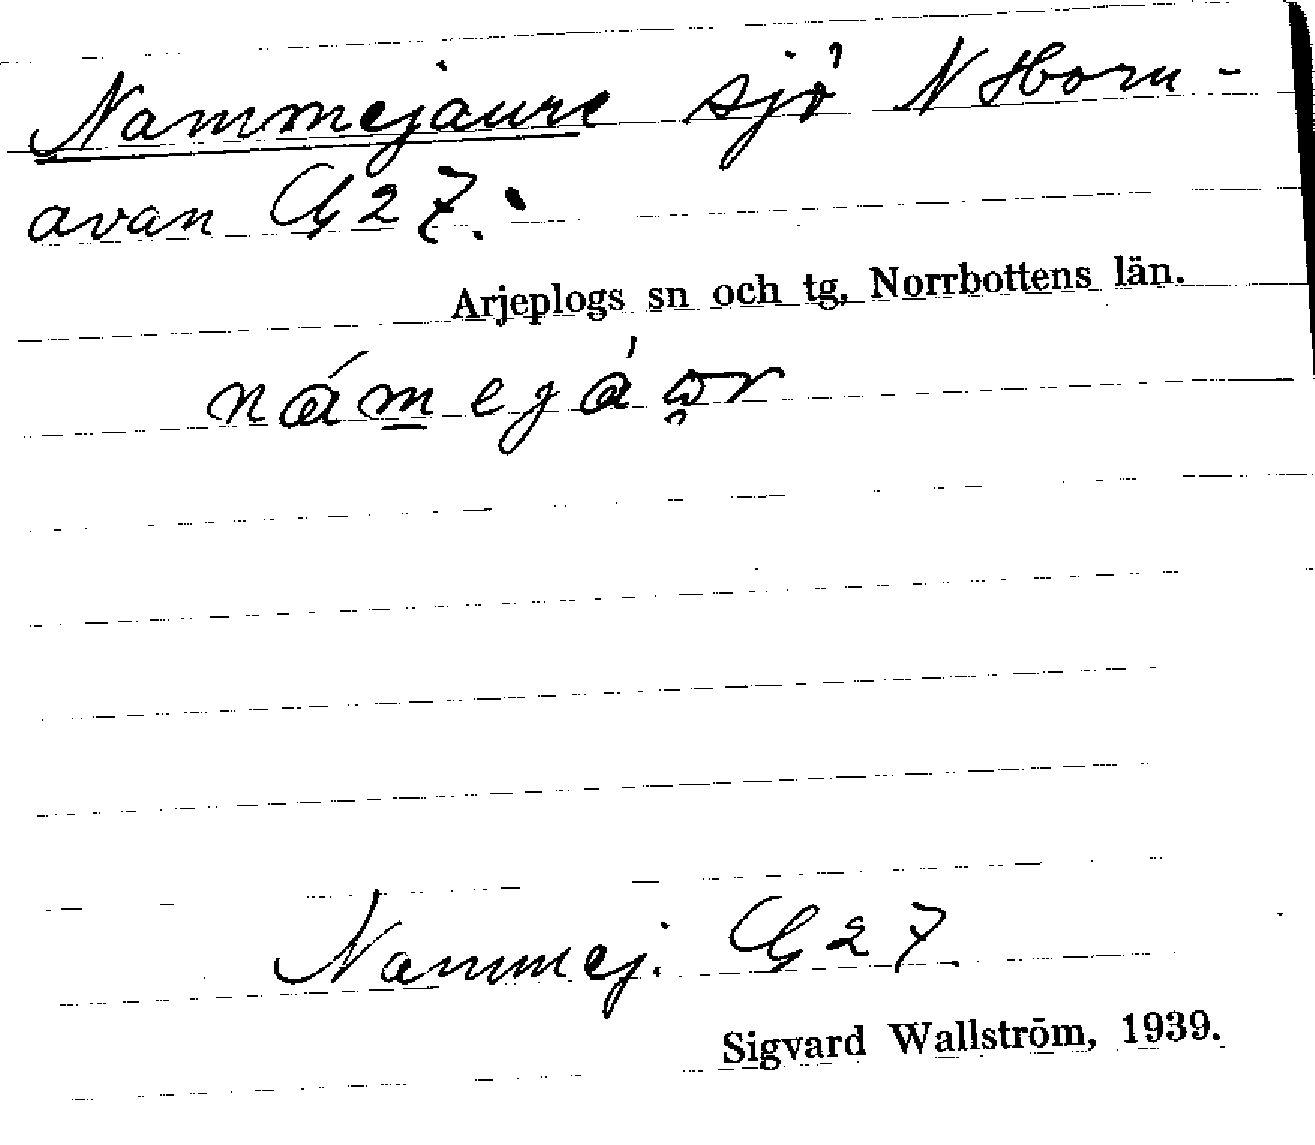 Nammejaure sjö N Horn-
avan G27.
Arjeplogs sn och tg, Norrbottens län.
námegáo̯r
Nammej. G27
Sigvard Wallström, 1939.